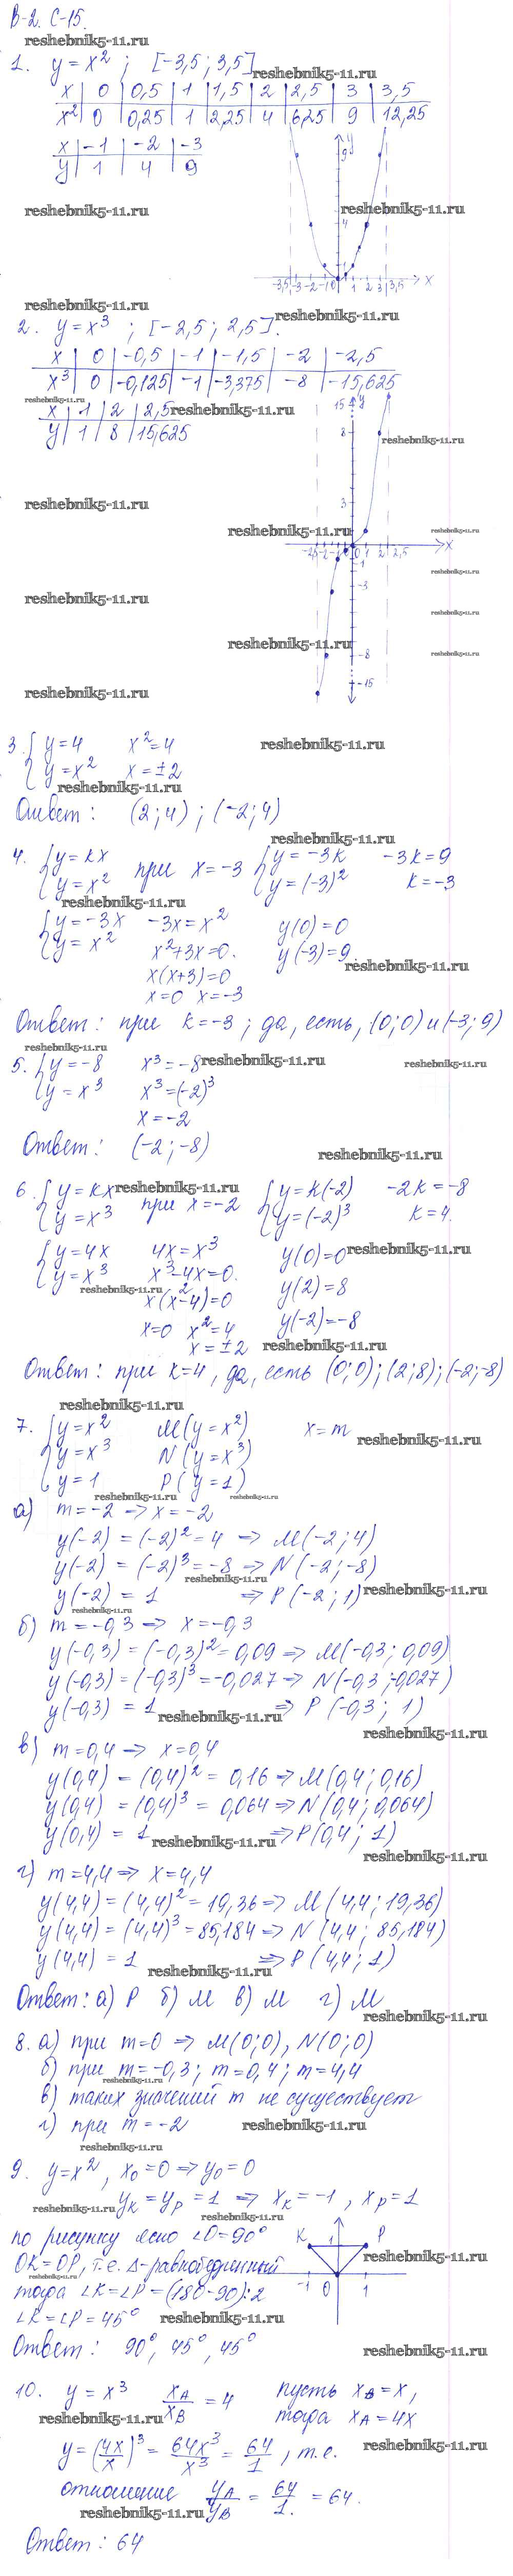 В-2. С-15.
reshebnik5-11.ru
1. y = x² ; [-3,5 ; 3,5]
reshebnik5-11.ru
x | 0 | 0,5 | 1 | 1,5 | 2 | 2,5 | 3 | 3,5
x² | 0 | 0,25 | 1 | 2,25 | 4 | 6,25 | 9 | 12,25
x | -1 | -2 | -3
y | 1 | 4 | 9
y
9
reshebnik5-11.ru
reshebnik5-11.ru
4
1
-3,5 -3 -2 -1 0 1 2 3 3,5 x
reshebnik5-11.ru
reshebnik5-11.ru
2. y = x³ ; [-2,5 ; 2,5].
x | 0 | -0,5 | -1 | -1,5 | -2 | -2,5
x³ | 0 | -0,125 | -1 | -3,375 | -8 | -15,625
reshebnik5-11.ru
x | 1 | 2 | 2,5
y | 1 | 8 | 15,625
reshebnik5-11.ru
15 y
8
reshebnik5-11.ru
reshebnik5-11.ru
3
reshebnik5-11.ru
reshebnik5-11.ru
-2,5 -2 -1 0 1 2 2,5 x
-1
reshebnik5-11.ru
-3
reshebnik5-11.ru
reshebnik5-11.ru
reshebnik5-11.ru
reshebnik5-11.ru
-8
reshebnik5-11.ru
-15
3. { y = 4 x² = 4
reshebnik5-11.ru
y = x² x = ±2
reshebnik5-11.ru
Ответ: (2; 4) ; (-2; 4)
reshebnik5-11.ru
4. { y = kx при x = -3 { y = -3k -3k = 9
y = x² y = (-3)² k = -3
reshebnik5-11.ru
{ y = -3x -3x = x² y(0) = 0
y = x² x² + 3x = 0. y(-3) = 9.
reshebnik5-11.ru
x(x+3) = 0
x = 0 x = -3
Ответ: при k = -3 ; да, есть, (0; 0) и (-3; 9)
reshebnik5-11.ru
5. { y = -8 x³ = -8
reshebnik5-11.ru
reshebnik5-11.ru
y = x³ x³ = (-2)³
x = -2
Ответ: (-2; -8)
reshebnik5-11.ru
6. { y = kx при x = -2 { y = k(-2) -2k = -8
reshebnik5-11.ru
y = x³ y = (-2)³ k = 4.
{ y = 4x 4x = x³ y(0) = 0
reshebnik5-11.ru
y = x³ x³ - 4x = 0. y(2) = 8
reshebnik5-11.ru
x(x² - 4) = 0 y(-2) = -8
x = 0 x² = 4
x = ±2
reshebnik5-11.ru
Ответ: при k = 4, да, есть (0; 0); (2; 8); (-2; -8)
reshebnik5-11.ru
7. { y = x² M (y = x²) x = m
reshebnik5-11.ru
y = x³ N (y = x³)
y = 1 P (y = 1)
reshebnik5-11.ru
reshebnik5-11.ru
а) m = -2 => x = -2
y(-2) = (-2)² = 4 => M (-2; 4)
y(-2) = (-2)³ = -8 => N (-2; -8)
reshebnik5-11.ru
y(-2) = 1 => P (-2; 1)
reshebnik5-11.ru
reshebnik5-11.ru
б) m = -0,3 => x = -0,3
y(-0,3) = (-0,3)² = 0,09 => M (-0,3; 0,09)
y(-0,3) = (-0,3)³ = -0,027 => N (-0,3; -0,027)
y(-0,3) = 1 => P (-0,3; 1)
reshebnik5-11.ru
reshebnik5-11.ru
в) m = 0,4 => x = 0,4
y(0,4) = (0,4)² = 0,16 => M (0,4; 0,16)
y(0,4) = (0,4)³ = 0,064 => N (0,4; 0,064)
y(0,4) = 1 => P (0,4; 1)
reshebnik5-11.ru
reshebnik5-11.ru
г) m = 4,4 => x = 4,4
y(4,4) = (4,4)² = 19,36 => M (4,4; 19,36)
y(4,4) = (4,4)³ = 85,184 => N (4,4; 85,184)
y(4,4) = 1 => P (4,4; 1)
reshebnik5-11.ru
Ответ: а) P б) M в) M г) M
reshebnik5-11.ru
8. а) при m = 0 => M (0; 0), N (0; 0)
б) при m = -0,3; m = 0,4; m = 4,4
reshebnik5-11.ru
в) таких значений m не существует
г) при m = -2
reshebnik5-11.ru
reshebnik5-11.ru
9. y = x², x₀ = 0 => y₀ = 0
yK = yP = 1 => xK = -1, xP = 1
reshebnik5-11.ru
по рисунку ясно ∠O = 90°
K 1 P
reshebnik5-11.ru
OK = OP, т.е. Δ-равнобедренный
reshebnik5-11.ru
-1 0 1
тогда ∠K = ∠P = (180-90):2
∠K = ∠P = 45°
reshebnik5-11.ru
Ответ: 90°, 45°, 45°
reshebnik5-11.ru
10. y = x³ xA/xB = 4 пусть xB = x,
тогда xA = 4x
reshebnik5-11.ru
y = (4x/x)³ = 64x³/x³ = 64/1, т.е.
reshebnik5-11.ru
отношение yA/yB = 64/1 = 64.
reshebnik5-11.ru
Ответ: 64